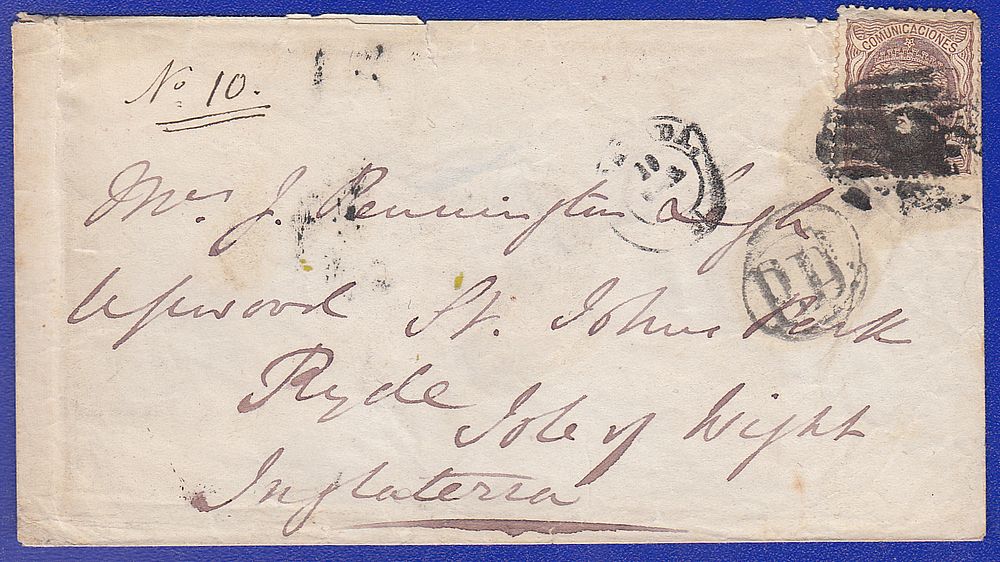 COMUNICACIONES
No. 10.
10
Mrs J. Pennington Legh
P.D.
Upwood St. Johns Park
Ryde
Isle of Wight
Inglaterra